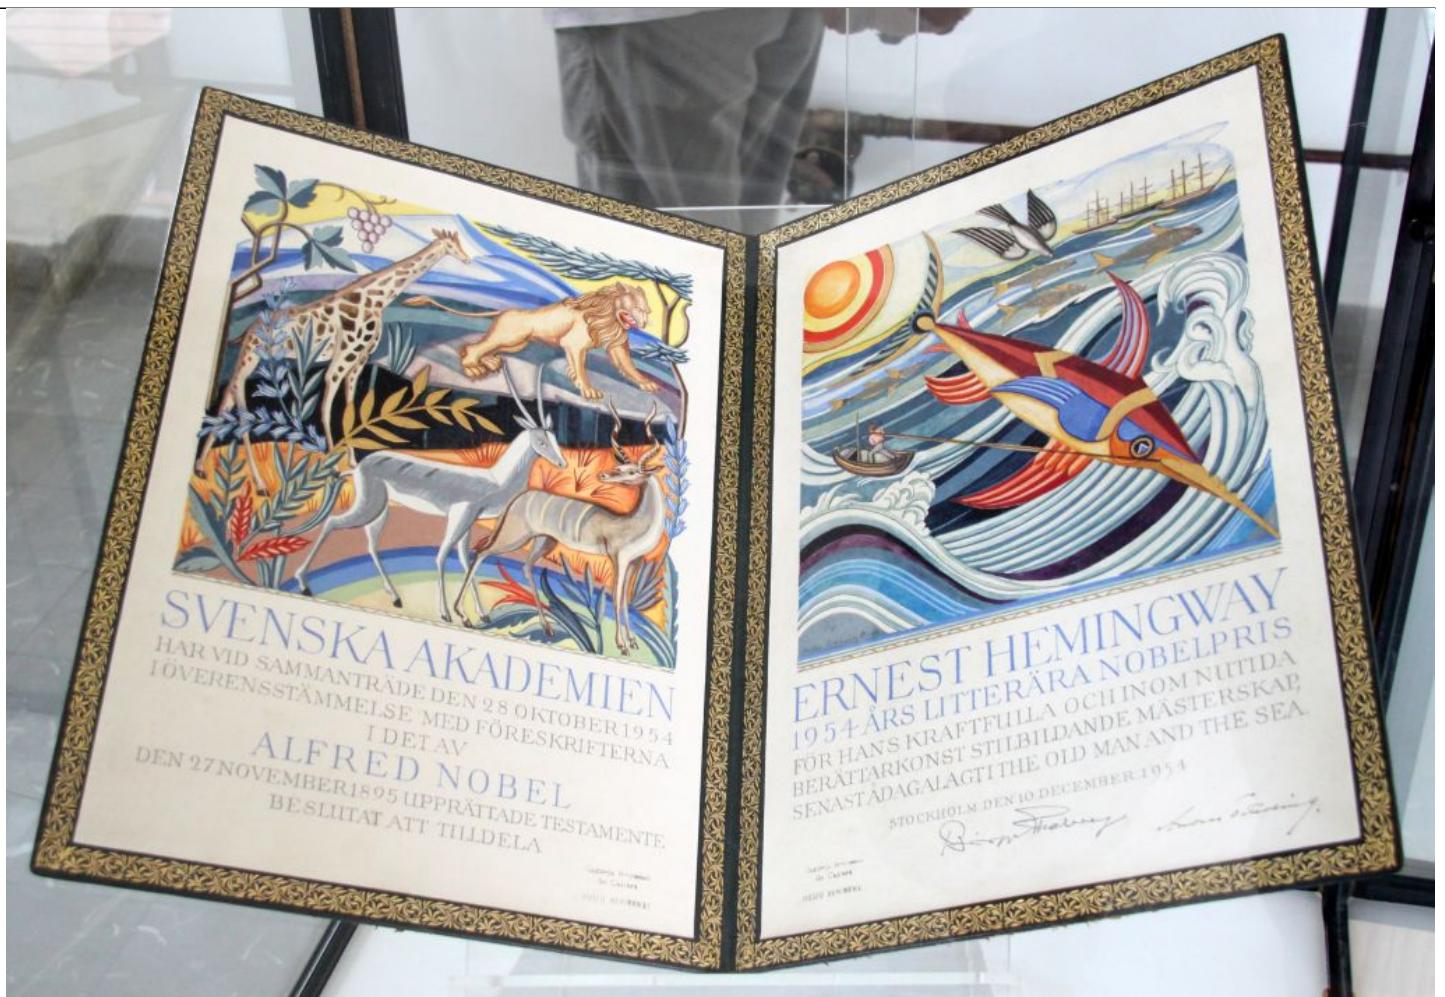 SVENSKA AKADEMIEN
HAR VID SAMMANTRÄDE DEN 28 OKTOBER 1954
I ÖVERENSSTÄMMELSE MED FÖRESKRIFTERNA
I DET AV
ALFRED NOBEL
DEN 27 NOVEMBER 1895 UPPRÄTTADE TESTAMENTE
BESLUTAT ATT TILLDELA
ERNEST HEMINGWAY
1954 ÅRS LITTERÄRA NOBELPRIS
FÖR HANS KRAFTFULLA OCH INOM NUTIDA
BERÄTTARKONST STILBILDANDE MÄSTERSKAP,
SENAST ÅDAGALAGT I THE OLD MAN AND THE SEA.
STOCKHOLM DEN 10 DECEMBER 1954